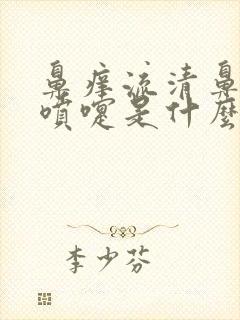 鼻痒流清鼻
喷嚏是什麼
李少芬